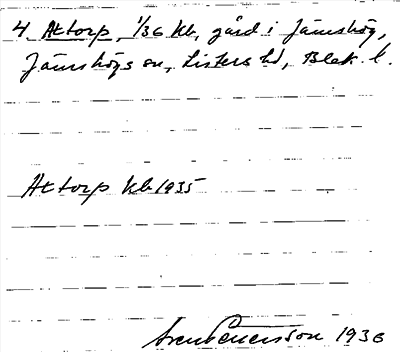 4 Attorp, 1/36 kb, gård i Jämshög,
Jämshögs sn, Listers hd, Blek. l.
Attorp kb 1935
1936